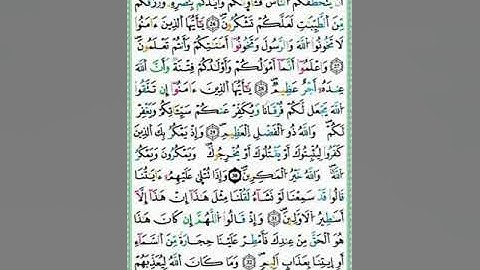 يَتَخَطَّفَكُمُ النَّاسُ فَـَٔاوَىٰكُمْ وَأَيَّدَكُم بِنَصْرِهِۦ وَرَزَقَكُم
مِّنَ الطَّيِّبَٰتِ لَعَلَّكُمْ تَشْكُرُونَ ۝٢٦ يَٰٓأَيُّهَا الَّذِينَ ءَامَنُوا۟
لَا تَخُونُوا۟ اللَّهَ وَالرَّسُولَ وَتَخُونُوٓا۟ أَمَٰنَٰتِكُمْ وَأَنتُمْ تَعْلَمُونَ ۝٢٧
وَاعْلَمُوٓا۟ أَنَّمَآ أَمْوَٰلُكُمْ وَأَوْلَٰدُكُمْ فِتْنَةٌ وَأَنَّ اللَّهَ
عِندَهُۥٓ أَجْرٌ عَظِيمٌ ۝٢٨ يَٰٓأَيُّهَا الَّذِينَ ءَامَنُوٓا۟ إِن تَتَّقُوا۟
اللَّهَ يَجْعَل لَّكُمْ فُرْقَانًا وَيُكَفِّرْ عَنكُمْ سَيِّـَٔاتِكُمْ وَيَغْفِرْ
لَكُمْ ۗ وَاللَّهُ ذُو الْفَضْلِ الْعَظِيمِ ۝٢٩ وَإِذْ يَمْكُرُ بِكَ الَّذِينَ
كَفَرُوا۟ لِيُثْبِتُوكَ أَوْ يَقْتُلُوكَ أَوْ يُخْرِجُوكَ ۚ وَيَمْكُرُونَ وَيَمْكُرُ
اللَّهُ ۖ وَاللَّهُ خَيْرُ الْمَٰكِرِينَ ۝٣٠ وَإِذَا تُتْلَىٰ عَلَيْهِمْ ءَايَٰتُنَا
قَالُوا۟ قَدْ سَمِعْنَا لَوْ نَشَآءُ لَقُلْنَا مِثْلَ هَٰذَآ ۙ إِنْ هَٰذَآ إِلَّآ
أَسَٰطِيرُ الْأَوَّلِينَ ۝٣١ وَإِذْ قَالُوا۟ اللَّهُمَّ إِن كَانَ هَٰذَا
هُوَ الْحَقَّ مِنْ عِندِكَ فَأَمْطِرْ عَلَيْنَا حِجَارَةً مِّنَ السَّمَآءِ
أَوِ ائْتِنَا بِعَذَابٍ أَلِيمٍ ۝٣٢ وَمَا كَانَ اللَّهُ لِيُعَذِّبَهُمْ